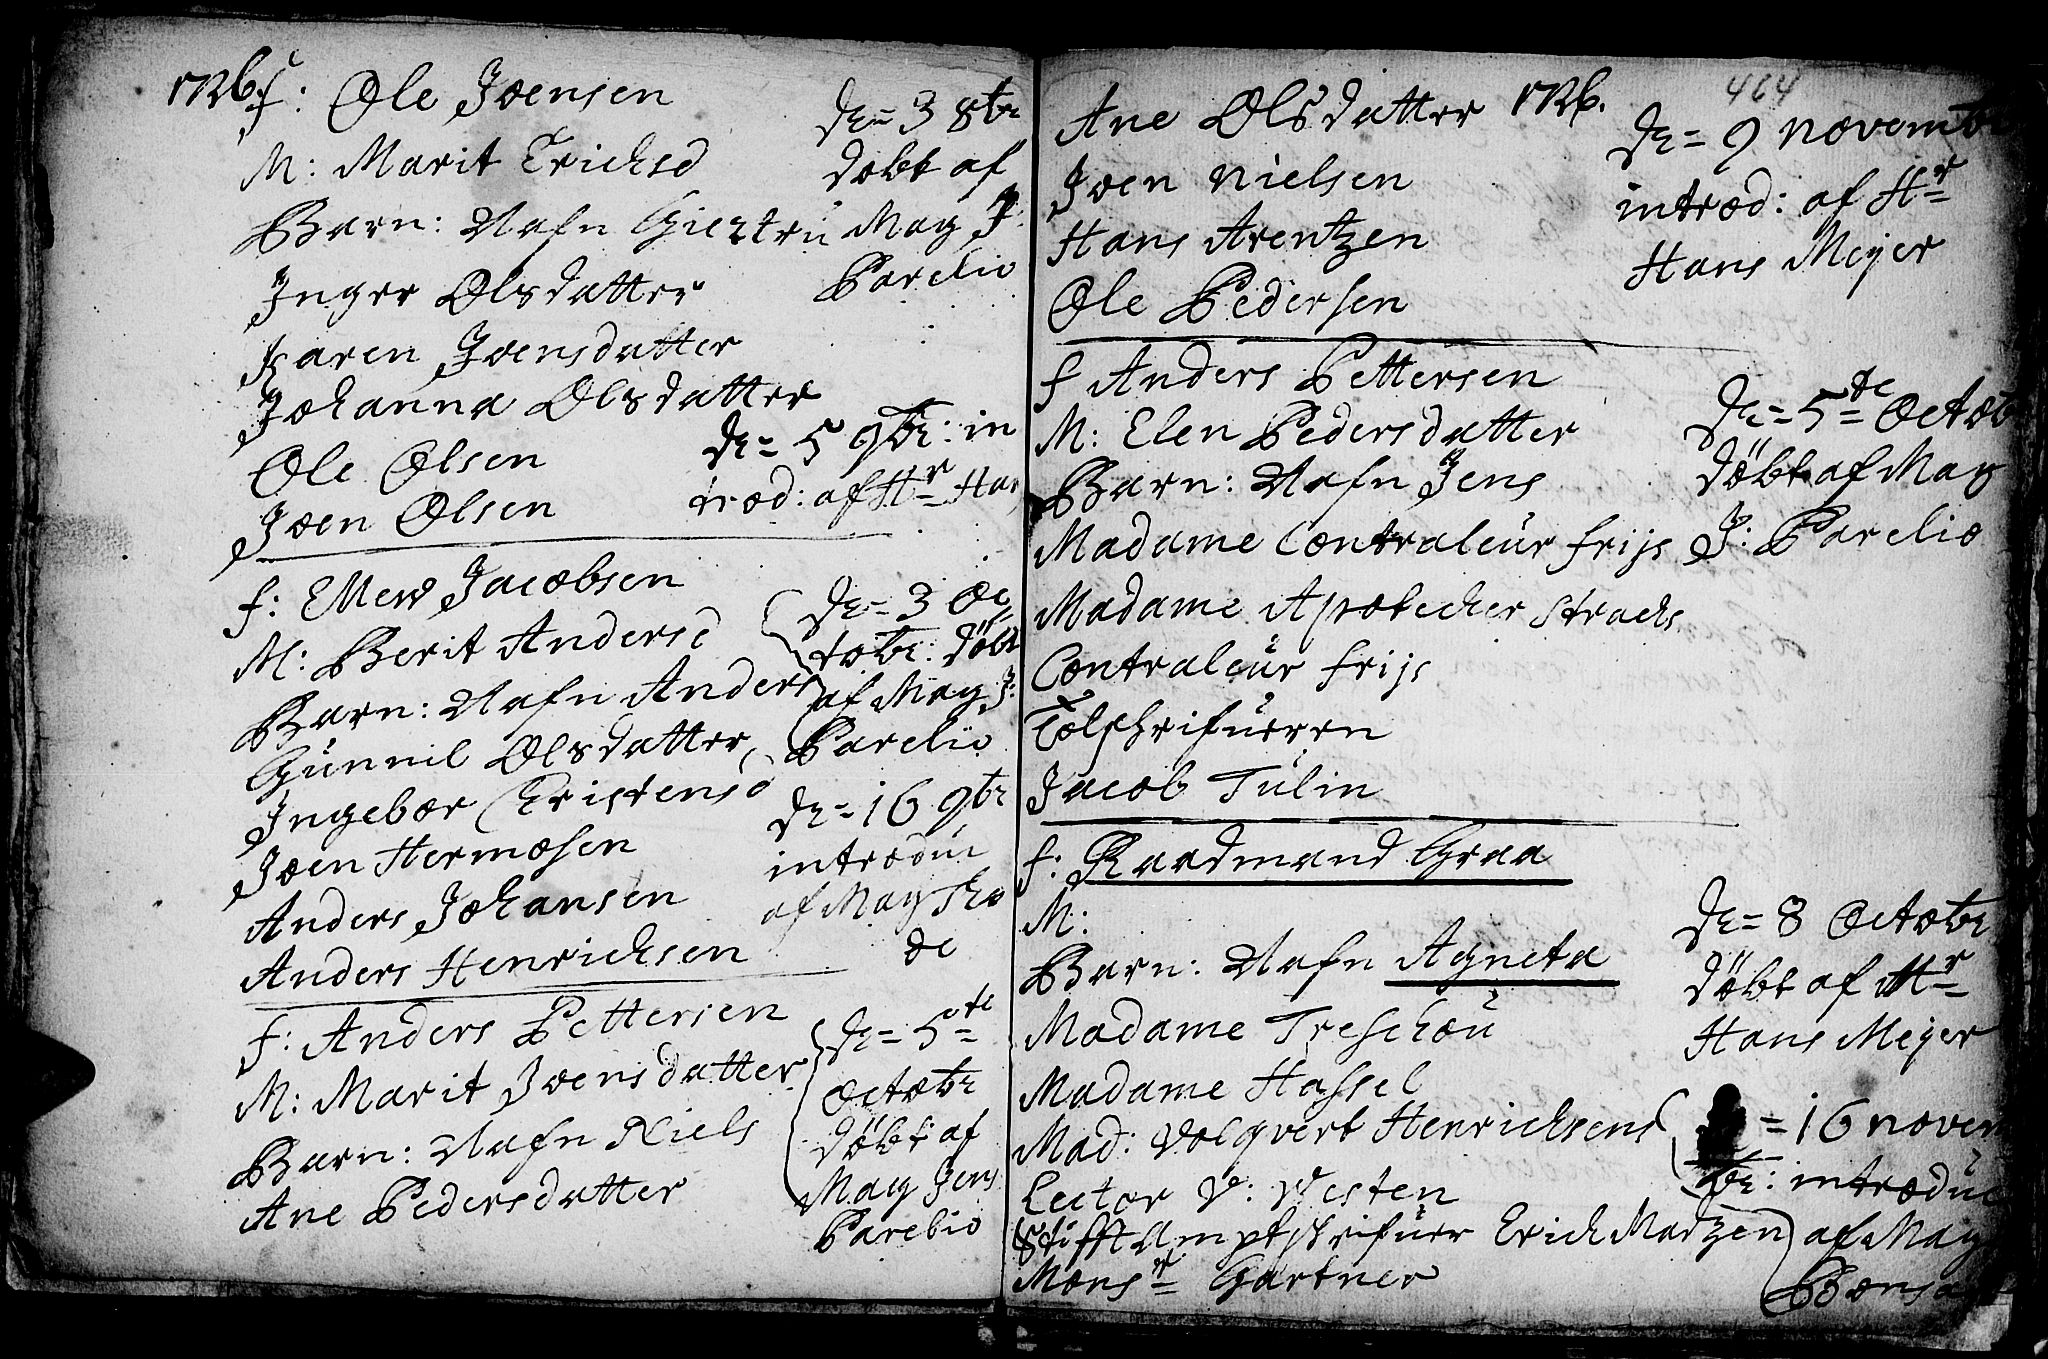 1726.
f: Ole Joensen
M: Marit Erichsd
Barn: Nafn Giertru
Inger Olsdatter
Karen Joensdatter
Johanna Olsdatter
Ole Olsen
Joen Olsen
De= 3 8br
döbt af
Mag J:
Parelio
De= 5 9br: in
trod: af Hr Han
f: Ellew Jacobsen
M: Berit Andersd
Barn: Nafn Anders
Gunnil Olsdatter
Ingebor Cristensd
Joen Hermosen
Anders Johansen
Anders Henrichsen
De= 3 Oc
tobr: döbt
af Mag J:
Parelio
De= 16 9br
introdui
af Mag Tho
de
f: Anders Pettersen
M: Marit Joensdatter
Barn: Nafn Niels
Ane Pedersdatter
De= 5te
Octobr
döbt af
Mag Jens
Parelio
464
Ane Olsdatter 1726.
Joen Nielsen
Hans Arentzen
Ole Pedersen
De= 9 novembr
introd: af Hr
Hans Meyer
f Anders Pettersen
M: Elen Pedersdatter
Barn: Nafn Jens
Madame Contraleur frijs
Madame Apotecker Strachs
Contraleur frijs
Tolschrifueren
Jacob Tulin
De= 5te Octob
döbt af Mag
J: Parelio
f: Raadmand Graa
M:
Barn: Nafn Agneta
Madame Treschou
Madame Hassel
Mad: Volqvert Henrichsens
Lector V: Westen
Stifft Amptskrifuer Erich Matzen
Monsr Gartner
De= 8 Octobr
döbt af Hr
Hans Meyer
= 16 novem
br: introdue
af Mag